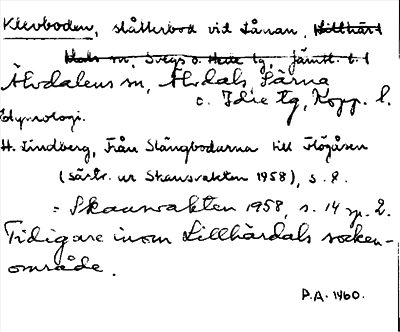 Klevboden, slåtterbod vid Lånan, Lillhär-
dals sn, Svegs o. Hede tg, Jämtl. l.
Älvdalens sn, Älvdals, Särna
o. Idre tg, Kopp. l.
Etymologi.
H. Lindberg, Från Slängbodarna till Flöjåsen
(särtr. ur Skansvakten 1958), s. 8.
= Skansvakten 1958, s. 14 sp. 2.
Tidigare inom Lillhärdals socken-
område.
P.A. 1960.